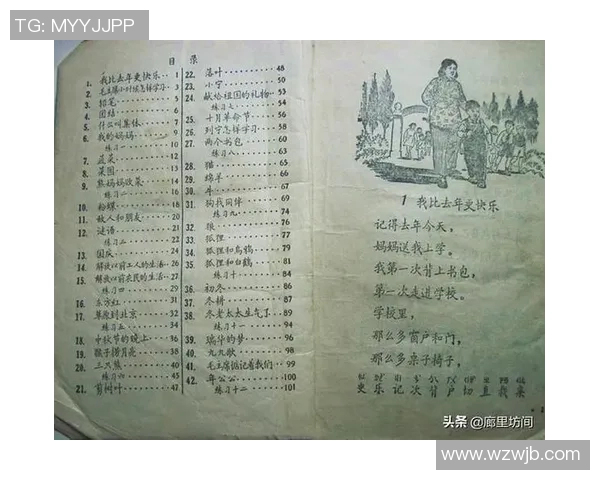 TG: MYYJJPP
目 录
1. 我比去年更快乐 1
2. 毛主席小时候怎样学习 3
3. 铅笔 5
4. 团结 6
5. 什么叫集体 7
6. 我的妈妈 9
练习一 10
7. 蔬菜 11
8. 菜园 12
9. 熊妈妈收菜 14
练习二 16
10. 粉蝶 17
11. 敌人和朋友 20
12. 谜语 21
练习三 22
13. 国庆 24
14. 解放以前工人的生活 26
15. 解放以前农民的生活 27
练习四 29
16. 东方红 31
17. 草原到北京 32
练习五 34
18. 中秋节的晚上 36
19. 猴子捞月亮 38
20. 三只熊 40
练习六 45
21. 剪树叶 47
22. 落叶 48
23. 小宁 50
24. 献给祖国的礼物 53
练习七 54
25. 十月革命节 56
26. 列宁怎样学习 58
27. 两个书包 61
练习八 63
28. 猫 65
29. 绵羊 66
30. 牛 67
31. 狗找同伴 69
练习九 74
32. 狼 76
33. 狐狸 77
34. 狐狸和乌鸦 79
35. 狐狸和白鹤 81
练习十 84
36. 初冬 86
37. 冬耕 87
38. 冬老太太生气了 89
练习十一 91
39. 瑞华的梦 94
40. 九九歌 98
41. 毛主席惦记着我们 99
42. 年公公 100
练习十二 101
1 我比去年更快乐
记得去年今天，
妈妈送我上学。
我第一次背上书包，
第一次走进学校。
学校里，
那么多窗户和门，
那么多桌子椅子，
更 乐 记 次 背 户 切 直 我 亲
头条 @廊里坊间
www.wzwjb.com